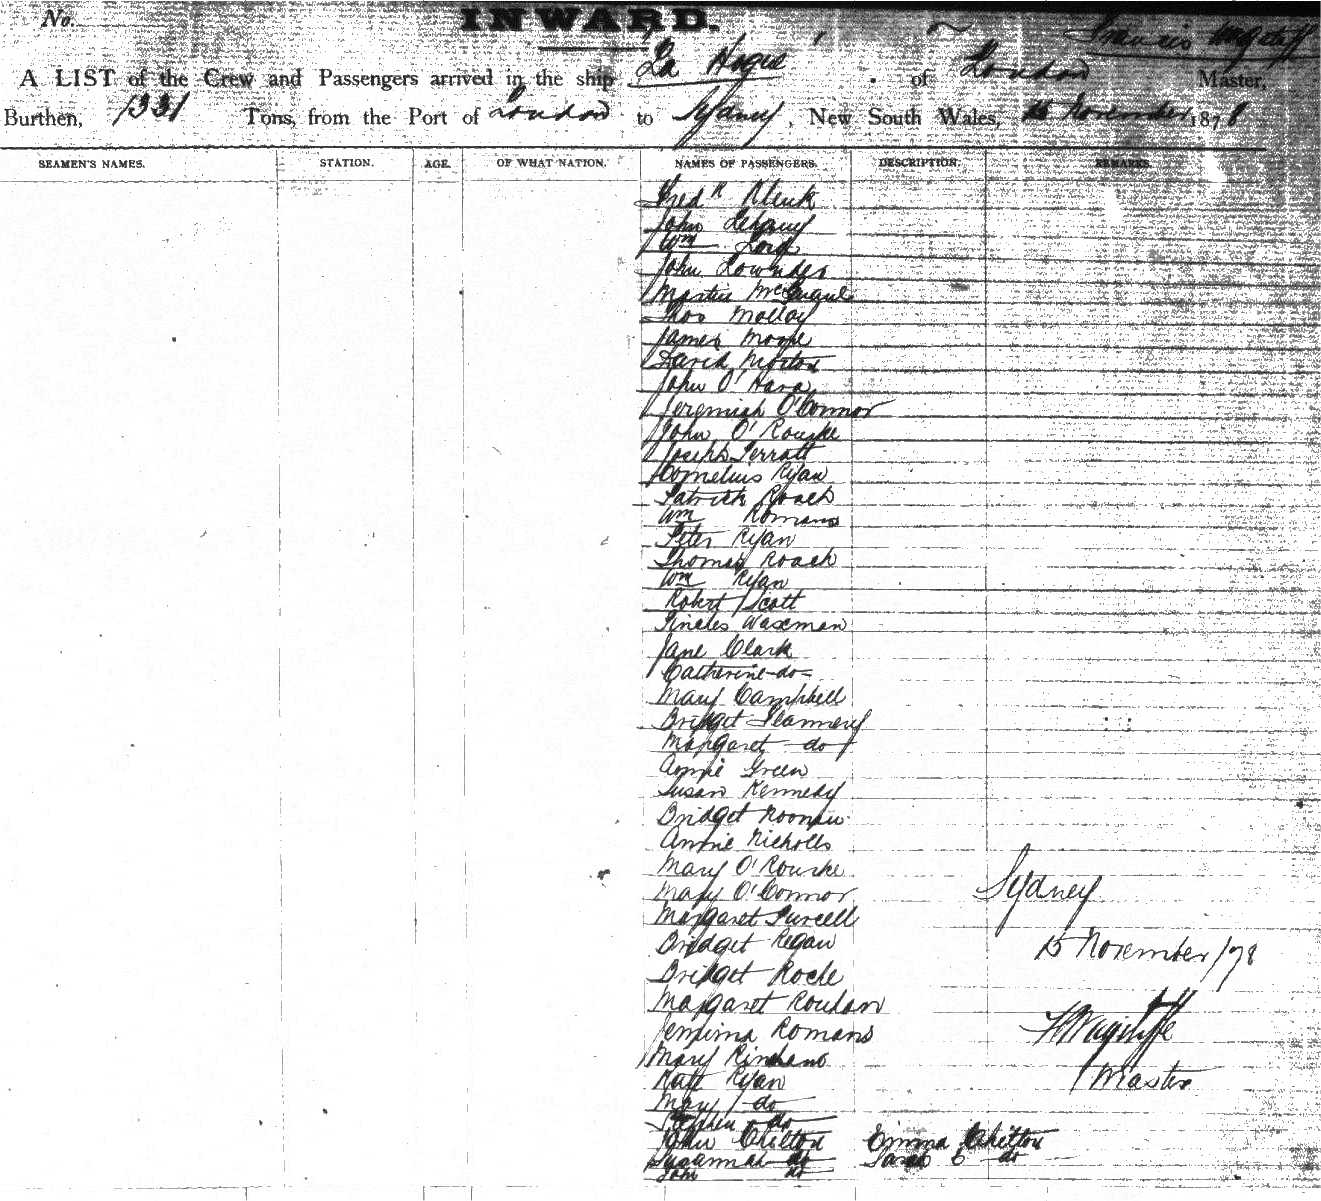 No.
INWARD.
A LIST of the Crew and Passengers arrived in the ship La Hogue of London Master,
Burthen, 1331 Tons, from the Port of London to Sydney, New South Wales, 15 November 1878
SEAMEN'S NAMES. STATION. AGE. OF WHAT NATION. NAMES OF PASSENGERS. DESCRIPTION. REMARKS.
Fredk
John
Wm Lord
John Lowndes
Martin
Thos Molloy
James Moore
David Morton
John O'Hara
Jeremiah O'Connor
John O'Rourke
Joseph Perratt
Cornelius Ryan
Patrick Roach
Wm Romans
Peter Ryan
Thomas Roach
Wm Ryan
Robert Scott
Waxman
Jane Clark
Catherine do
Mary Campbell
Bridget Flannery
Margaret do
Annie Green
Susan Kennedy
Bridget Noonan
Annie Nicholls
Mary O'Rourke
Mary O'Connor
Margaret Purcell
Bridget Regan
Bridget Roche
Margaret
Jemima Romans
Mary
Kate Ryan
Mary do
Stephen do
John Chilton Emma Chilton
Susannah do Sarah C do
John do
Sydney
15 November /78
Master